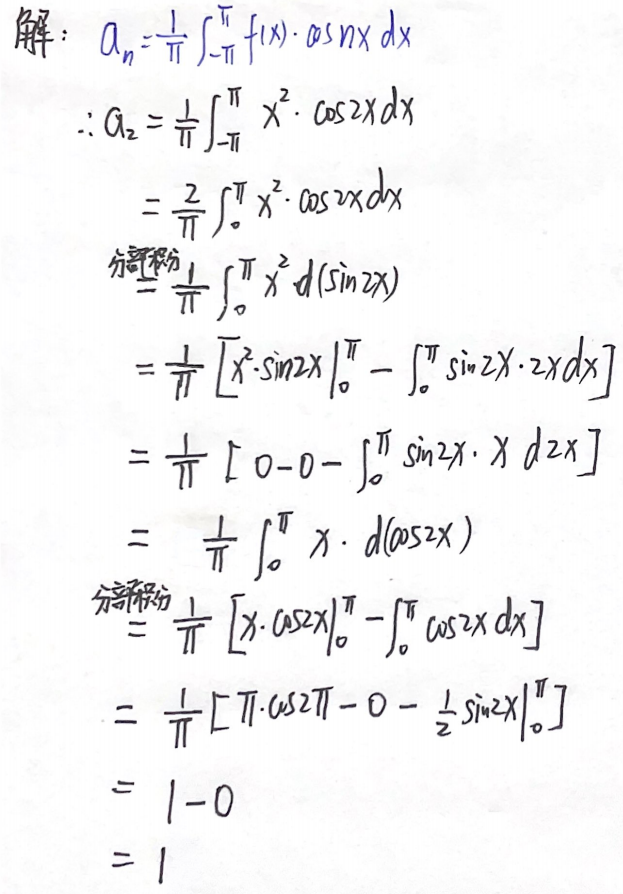 解： aₙ = 1/π ∫_{-π}^{π} f(x)·cos nx dx
∴ a₂ = 1/π ∫_{-π}^{π} x²·cos2x dx
= 2/π ∫₀^π x²·cos2x dx
分部积分
= 1/π ∫₀^π x² d(sin2x)
= 1/π [x²·sin2x|₀^π − ∫₀^π sin2x·2x dx]
= 1/π [0−0−∫₀^π sin2x·x d2x]
= 1/π ∫₀^π x·d(cos2x)
分部积分
= 1/π [x·cos2x|₀^π − ∫₀^π cos2x dx]
= 1/π [π·cos2π − 0 − 1/2 sin2x|₀^π]
= 1−0
= 1